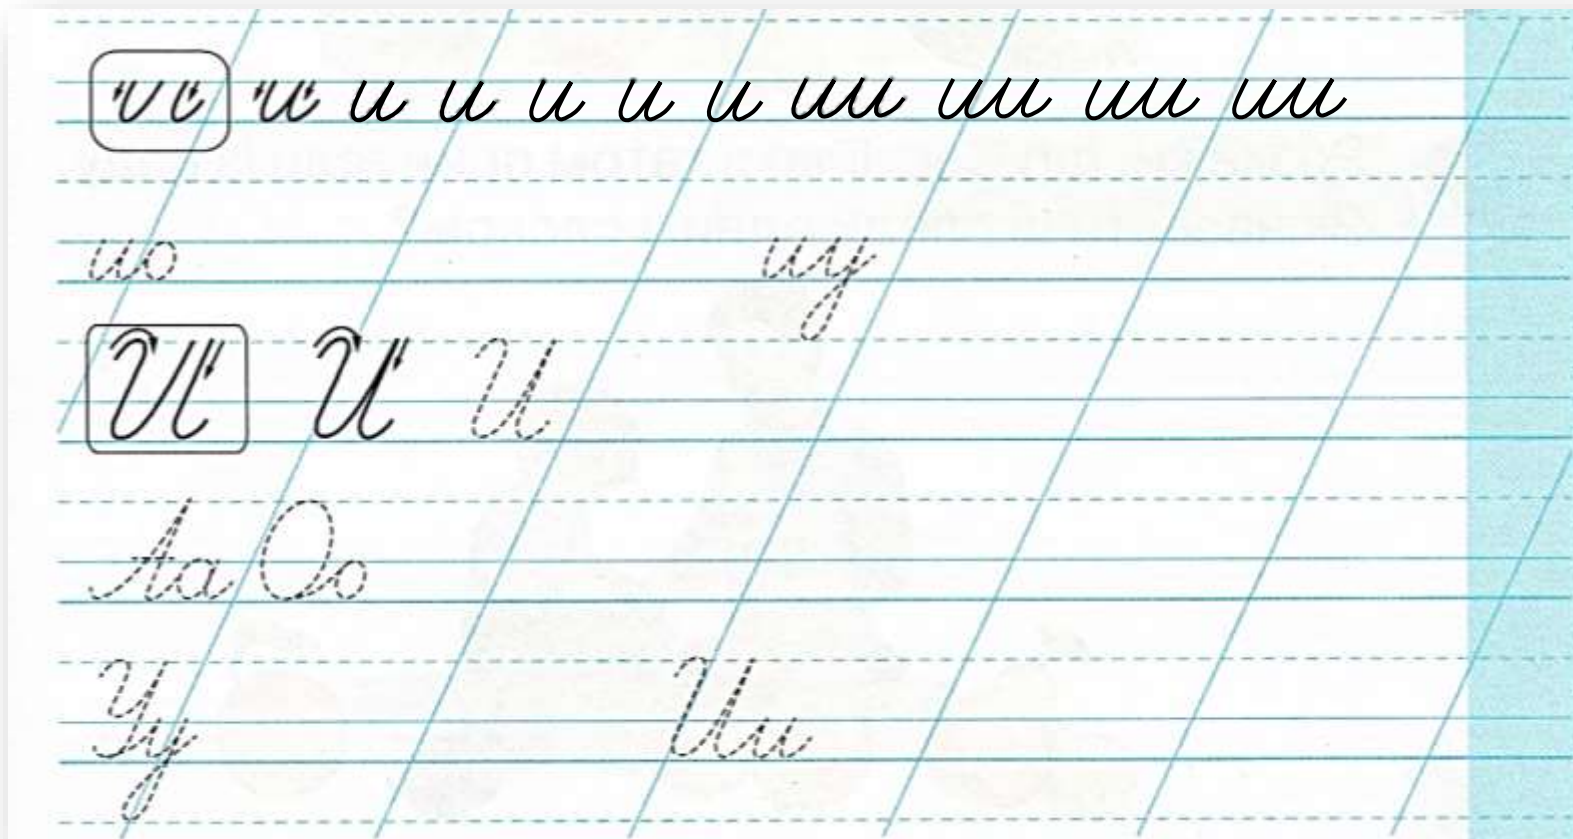 и и и и и и и ии ии ии ии
ио иу
И И И
Аа Оо
Уу Ии